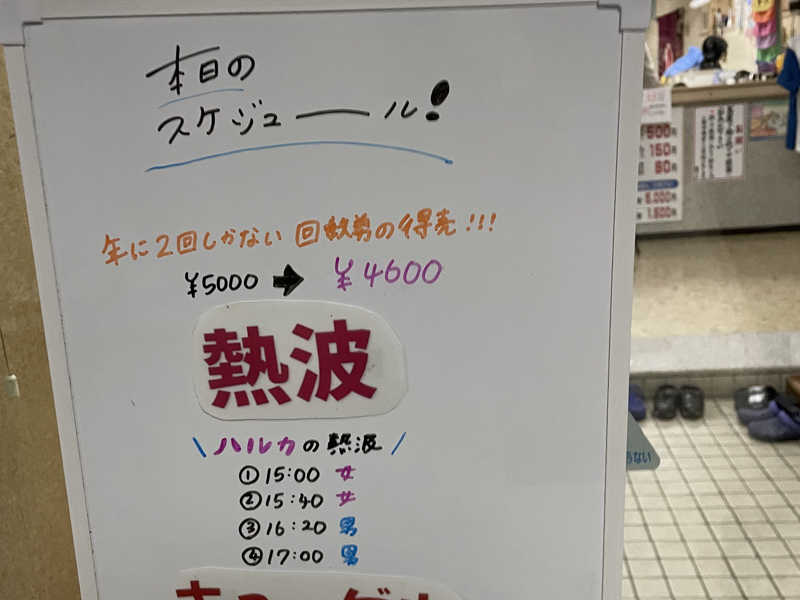 本日の
スケジュール!
年に2回しかない 回数券の得売!!!
¥5000 → ¥4600
熱波
\ ハルカの熱波 /
①15:00 女
②15:40 女
③16:20 男
④17:00 男
500円
150円
80円
5,000円
1,500円
お願い
ない